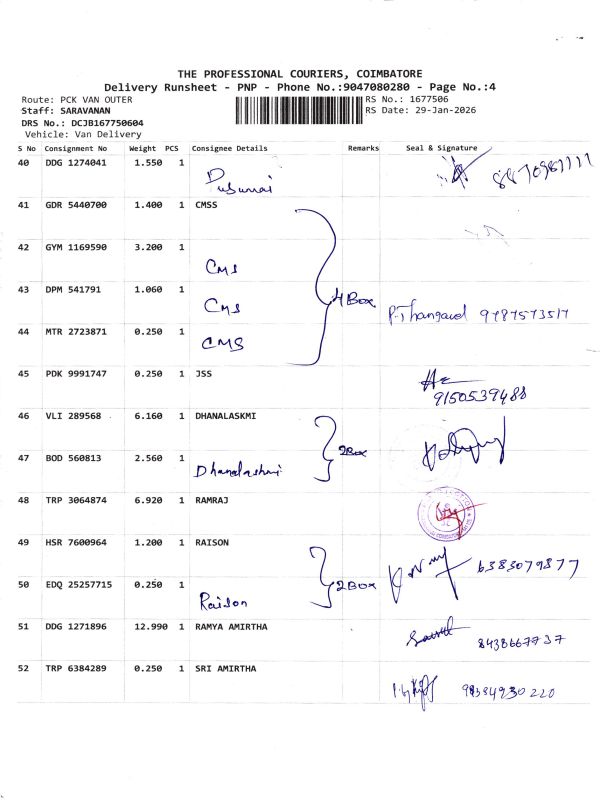 THE PROFESSIONAL COURIERS, COIMBATORE
Delivery Runsheet - PNP - Phone No.:9047080280 - Page No.:4
Route: PCK VAN OUTER
RS No.: 1677506
Staff: SARAVANAN
RS Date: 29-Jan-2026
DRS No.: DCJB167750604
Vehicle: Van Delivery
S No Consignment No Weight PCS Consignee Details Remarks Seal & Signature
40 DDG 1274041 1.550 1
41 GDR 5440700 1.400 1 CMSS
42 GYM 1169590 3.200 1
CMS
43 DPM 541791 1.060 1
CMS
4 Box
P. Thangavel
44 MTR 2723871 0.250 1
CMS
45 PDK 9991747 0.250 1 JSS
9150539488
46 VLI 289568 6.160 1 DHANALASKMI
47 BOD 560813 2.560 1
2Box
48 TRP 3064874 6.920 1 RAMRAJ
49 HSR 7600964 1.200 1 RAISON
6383079877
50 EDQ 25257715 0.250 1
Raison
2Box
51 DDG 1271896 12.990 1 RAMYA AMIRTHA
8438667737
52 TRP 6384289 0.250 1 SRI AMIRTHA